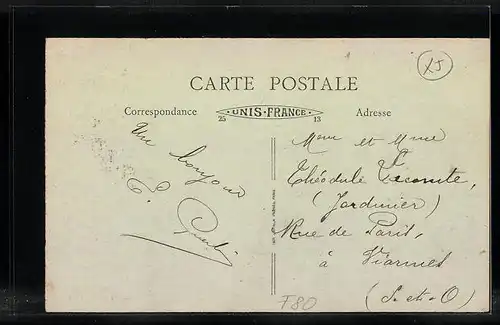 X5
CARTE POSTALE
Correspondance
UNIS-FRANCE
25
13
Adresse
Un bonjour
E.
Mme et Mme
Théodule Lecomte,
(Jardinier)
Rue de Paris,
à Viarmes
(S-et-O)
F80